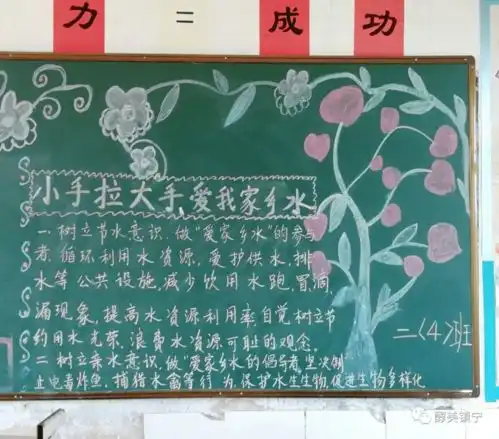 力 = 成 功
小手拉大手,爱我家乡水
一、树立节水意识,做"爱家乡水"的参与
者。循环利用水资源,爱护供水、排
水等公共设施,减少饮用水跑、冒、滴、
漏现象,提高水资源利用率,自觉树立节
约用水光荣、浪费水资源可耻的观念。
二、树立乘水意识,做"爱家乡水"的倡导者,坚决制
止电毒炸鱼、捕猎水禽等行为,保护水生生物,促进生物多样化
二〈4〉班
醉美镇宁